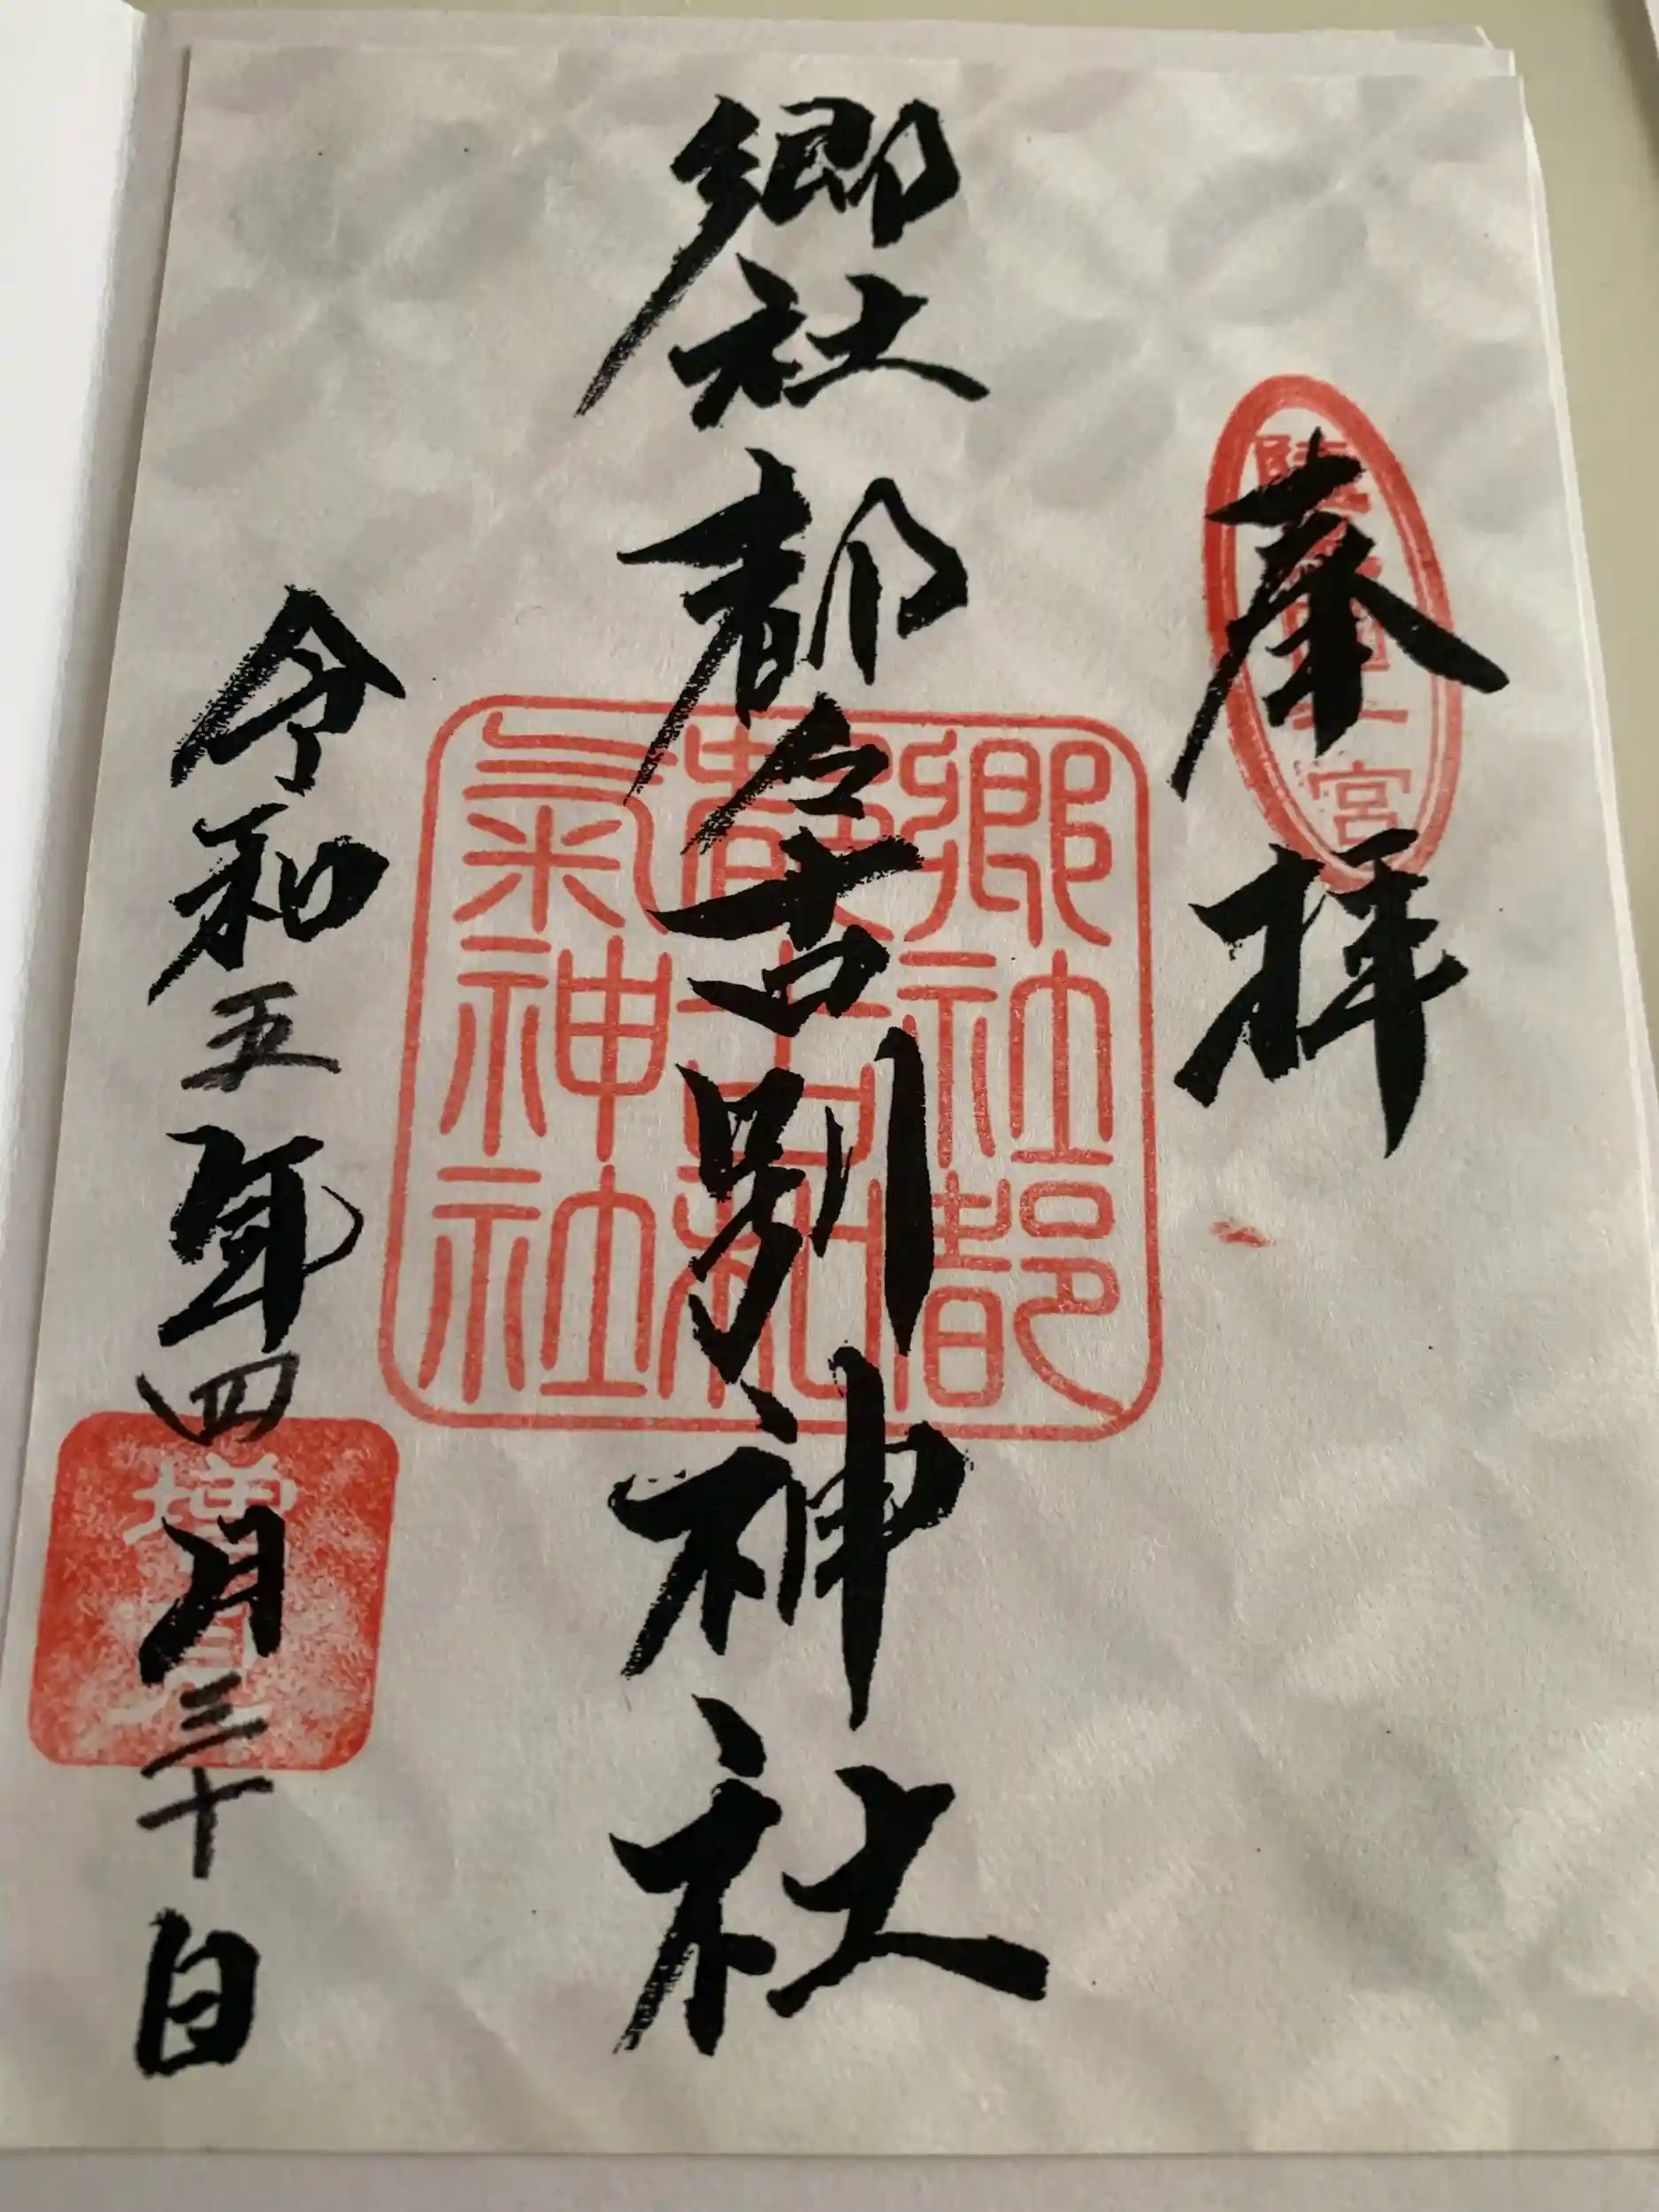 奉拝
陸奥國一宮
郷社都々古別神社
郷社都
都古和
氣神社
令和五年四月三十日